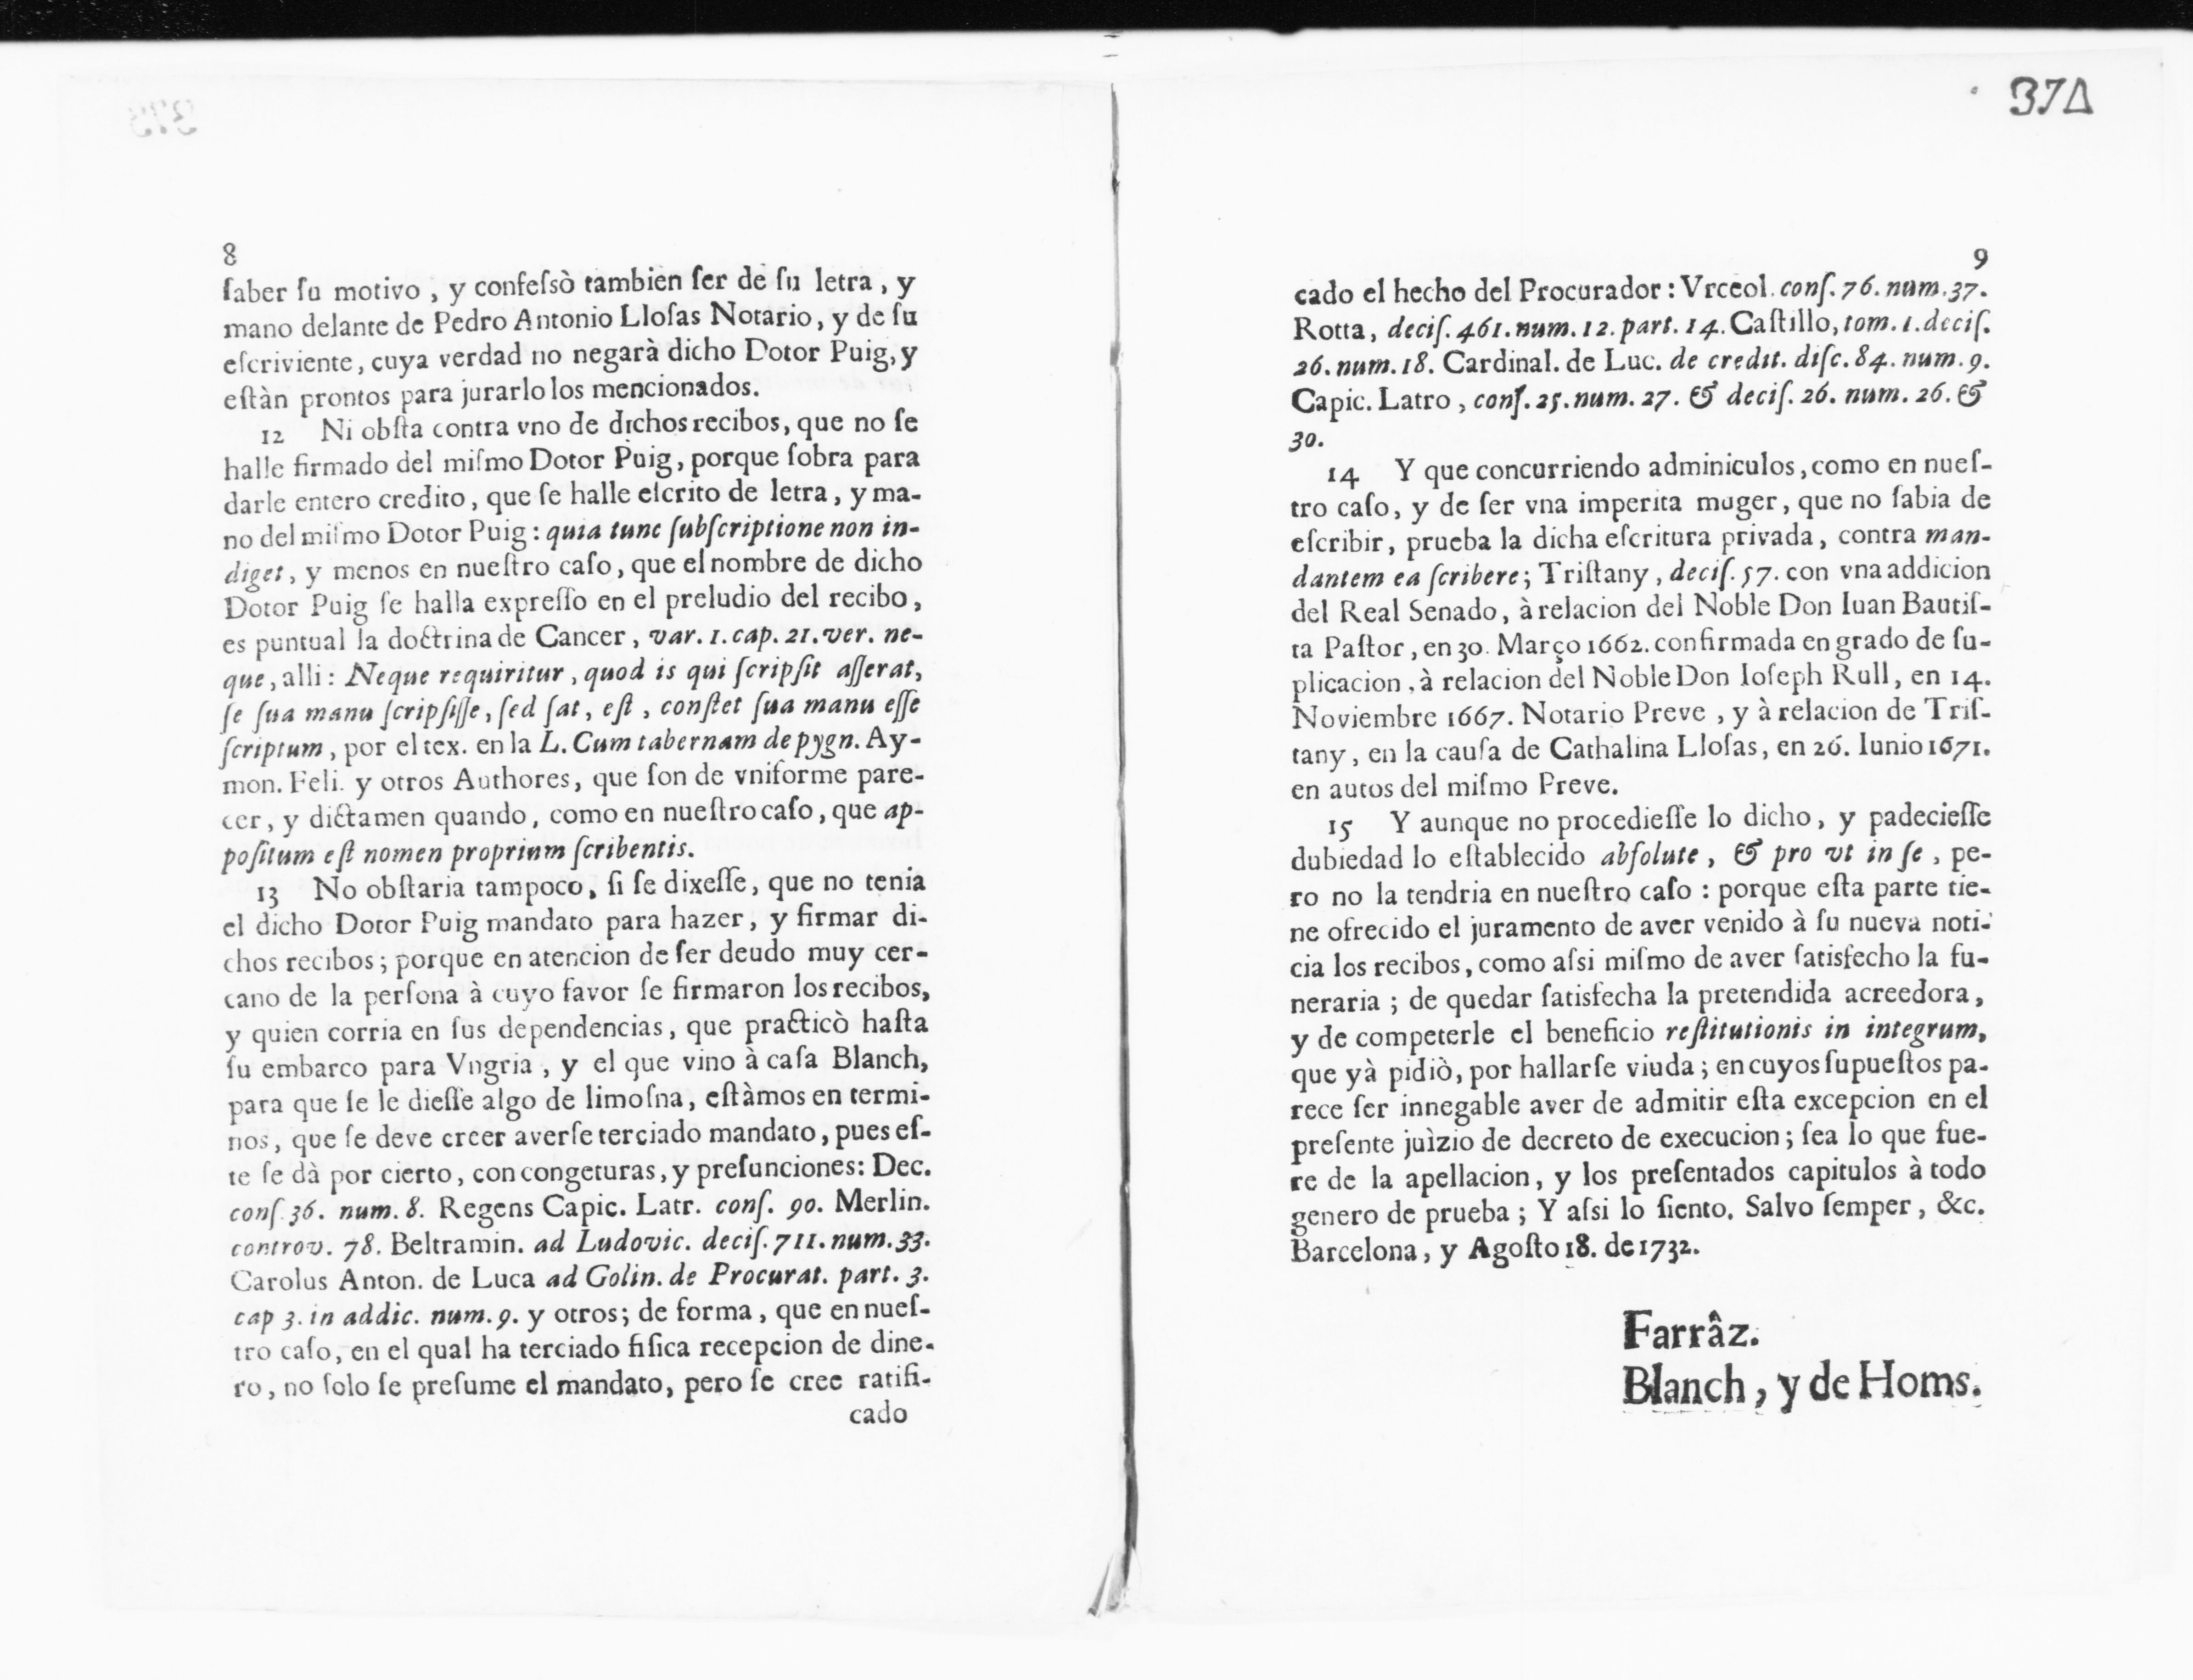 374
8
ſaber ſu motivo, y confeſsò tambien ſer de ſu letra, y
mano delante de Pedro Antonio Lloſas Notario, y de ſu
eſcriviente, cuya verdad no negarà dicho Dotor Puig, y
eſtàn prontos para jurarlo los mencionados.
12 Ni obſta contra vno de dichos recibos, que no ſe
halle firmado del miſmo Dotor Puig, porque ſobra para
darle entero credito, que ſe halle eſcrito de letra, y ma-
no del miſmo Dotor Puig: quia tunc ſubſcriptione non in-
diget, y menos en nueſtro caſo, que el nombre de dicho
Dotor Puig ſe halla expreſſo en el preludio del recibo,
es puntual la doctrina de Cancer, var. 1. cap. 21. ver. ne-
que, alli: Neque requiritur, quod is qui ſcripſit aſſerat,
ſe ſua manu ſcripſiſſe, ſed ſat, eſt, conſtet ſua manu eſſe
ſcriptum, por el tex. en la L. Cum tabernam de pygn. Ay-
mon. Feli. y otros Authores, que ſon de vniforme pare-
cer, y dictamen quando, como en nueſtro caſo, que ap-
poſitum eſt nomen proprium ſcribentis.
13 No obſtaria tampoco, ſi ſe dixeſſe, que no tenia
el dicho Dotor Puig mandato para hazer, y firmar di-
chos recibos; porque en atencion de ſer deudo muy cer-
cano de la perſona à cuyo favor ſe firmaron los recibos,
y quien corria en ſus dependencias, que practicò haſta
ſu embarco para Vngria, y el que vino à caſa Blanch,
para que ſe le dieſſe algo de limoſna, eſtàmos en termi-
nos, que ſe deve creer averſe terciado mandato, pues eſ-
te ſe dà por cierto, con congeturas, y preſunciones: Dec.
conſ. 36. num. 8. Regens Capic. Latr. conſ. 90. Merlin.
controv. 78. Beltramin. ad Ludovic. deciſ. 711. num. 33.
Carolus Anton. de Luca ad Golin. de Procurat. part. 3.
cap 3. in addic. num. 9. y otros; de forma, que en nueſ-
tro caſo, en el qual ha terciado fiſica recepcion de dine-
ro, no ſolo ſe preſume el mandato, pero ſe cree ratifi-
cado
9
cado el hecho del Procurador: Vrceol. conſ. 76. num. 37.
Rotta, deciſ. 461. num. 12. part. 14. Caſtillo, tom. 1. deciſ.
26. num. 18. Cardinal. de Luc. de credit. diſc. 84. num. 9.
Capic. Latro, conſ. 25. num. 27. & deciſ. 26. num. 26. &
30.
14 Y que concurriendo adminiculos, como en nueſ-
tro caſo, y de ſer vna imperita muger, que no ſabia de
eſcribir, prueba la dicha eſcritura privada, contra man-
dantem ea ſcribere; Triſtany, deciſ. 57. con vna addicion
del Real Senado, à relacion del Noble Don Iuan Bautiſ-
ta Paſtor, en 30. Março 1662. confirmada en grado de ſu-
plicacion, à relacion del Noble Don Ioſeph Rull, en 14.
Noviembre 1667. Notario Preve, y à relacion de Triſ-
tany, en la cauſa de Cathalina Lloſas, en 26. Iunio 1671.
en autos del miſmo Preve.
15 Y aunque no procedieſſe lo dicho, y padecieſſe
dubiedad lo eſtablecido abſolute, & pro vt in ſe, pe-
ro no la tendria en nueſtro caſo: porque eſta parte tie-
ne ofrecido el juramento de aver venido à ſu nueva noti-
cia los recibos, como aſsi miſmo de aver ſatisfecho la fu-
neraria; de quedar ſatisfecha la pretendida acreedora,
y de competerle el beneficio reſtitutionis in integrum,
que yà pidiò, por hallarſe viuda; en cuyos ſupueſtos pa-
rece ſer innegable aver de admitir eſta excepcion en el
preſente juìzio de decreto de execucion; ſea lo que fue-
re de la apellacion, y los preſentados capitulos à todo
genero de prueba; Y aſsi lo ſiento. Salvo ſemper, &c.
Barcelona, y Agoſto 18. de 1732.
Farrâz.
Blanch, y de Homs.